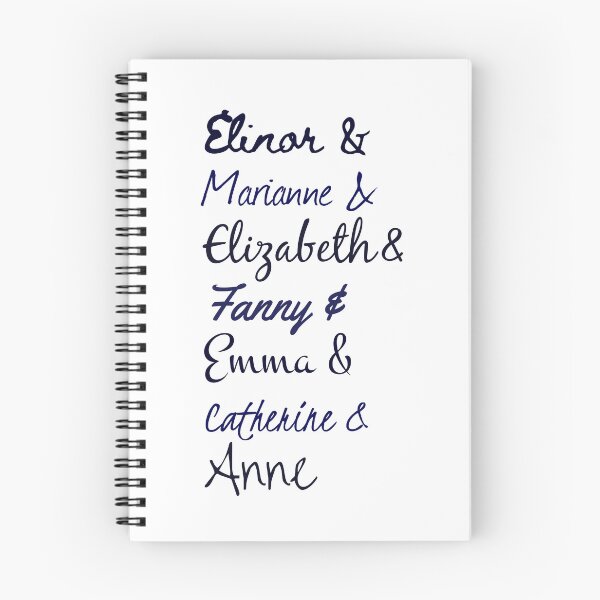 Elinor &
Marianne &
Elizabeth &
Fanny &
Emma &
Catherine &
Anne